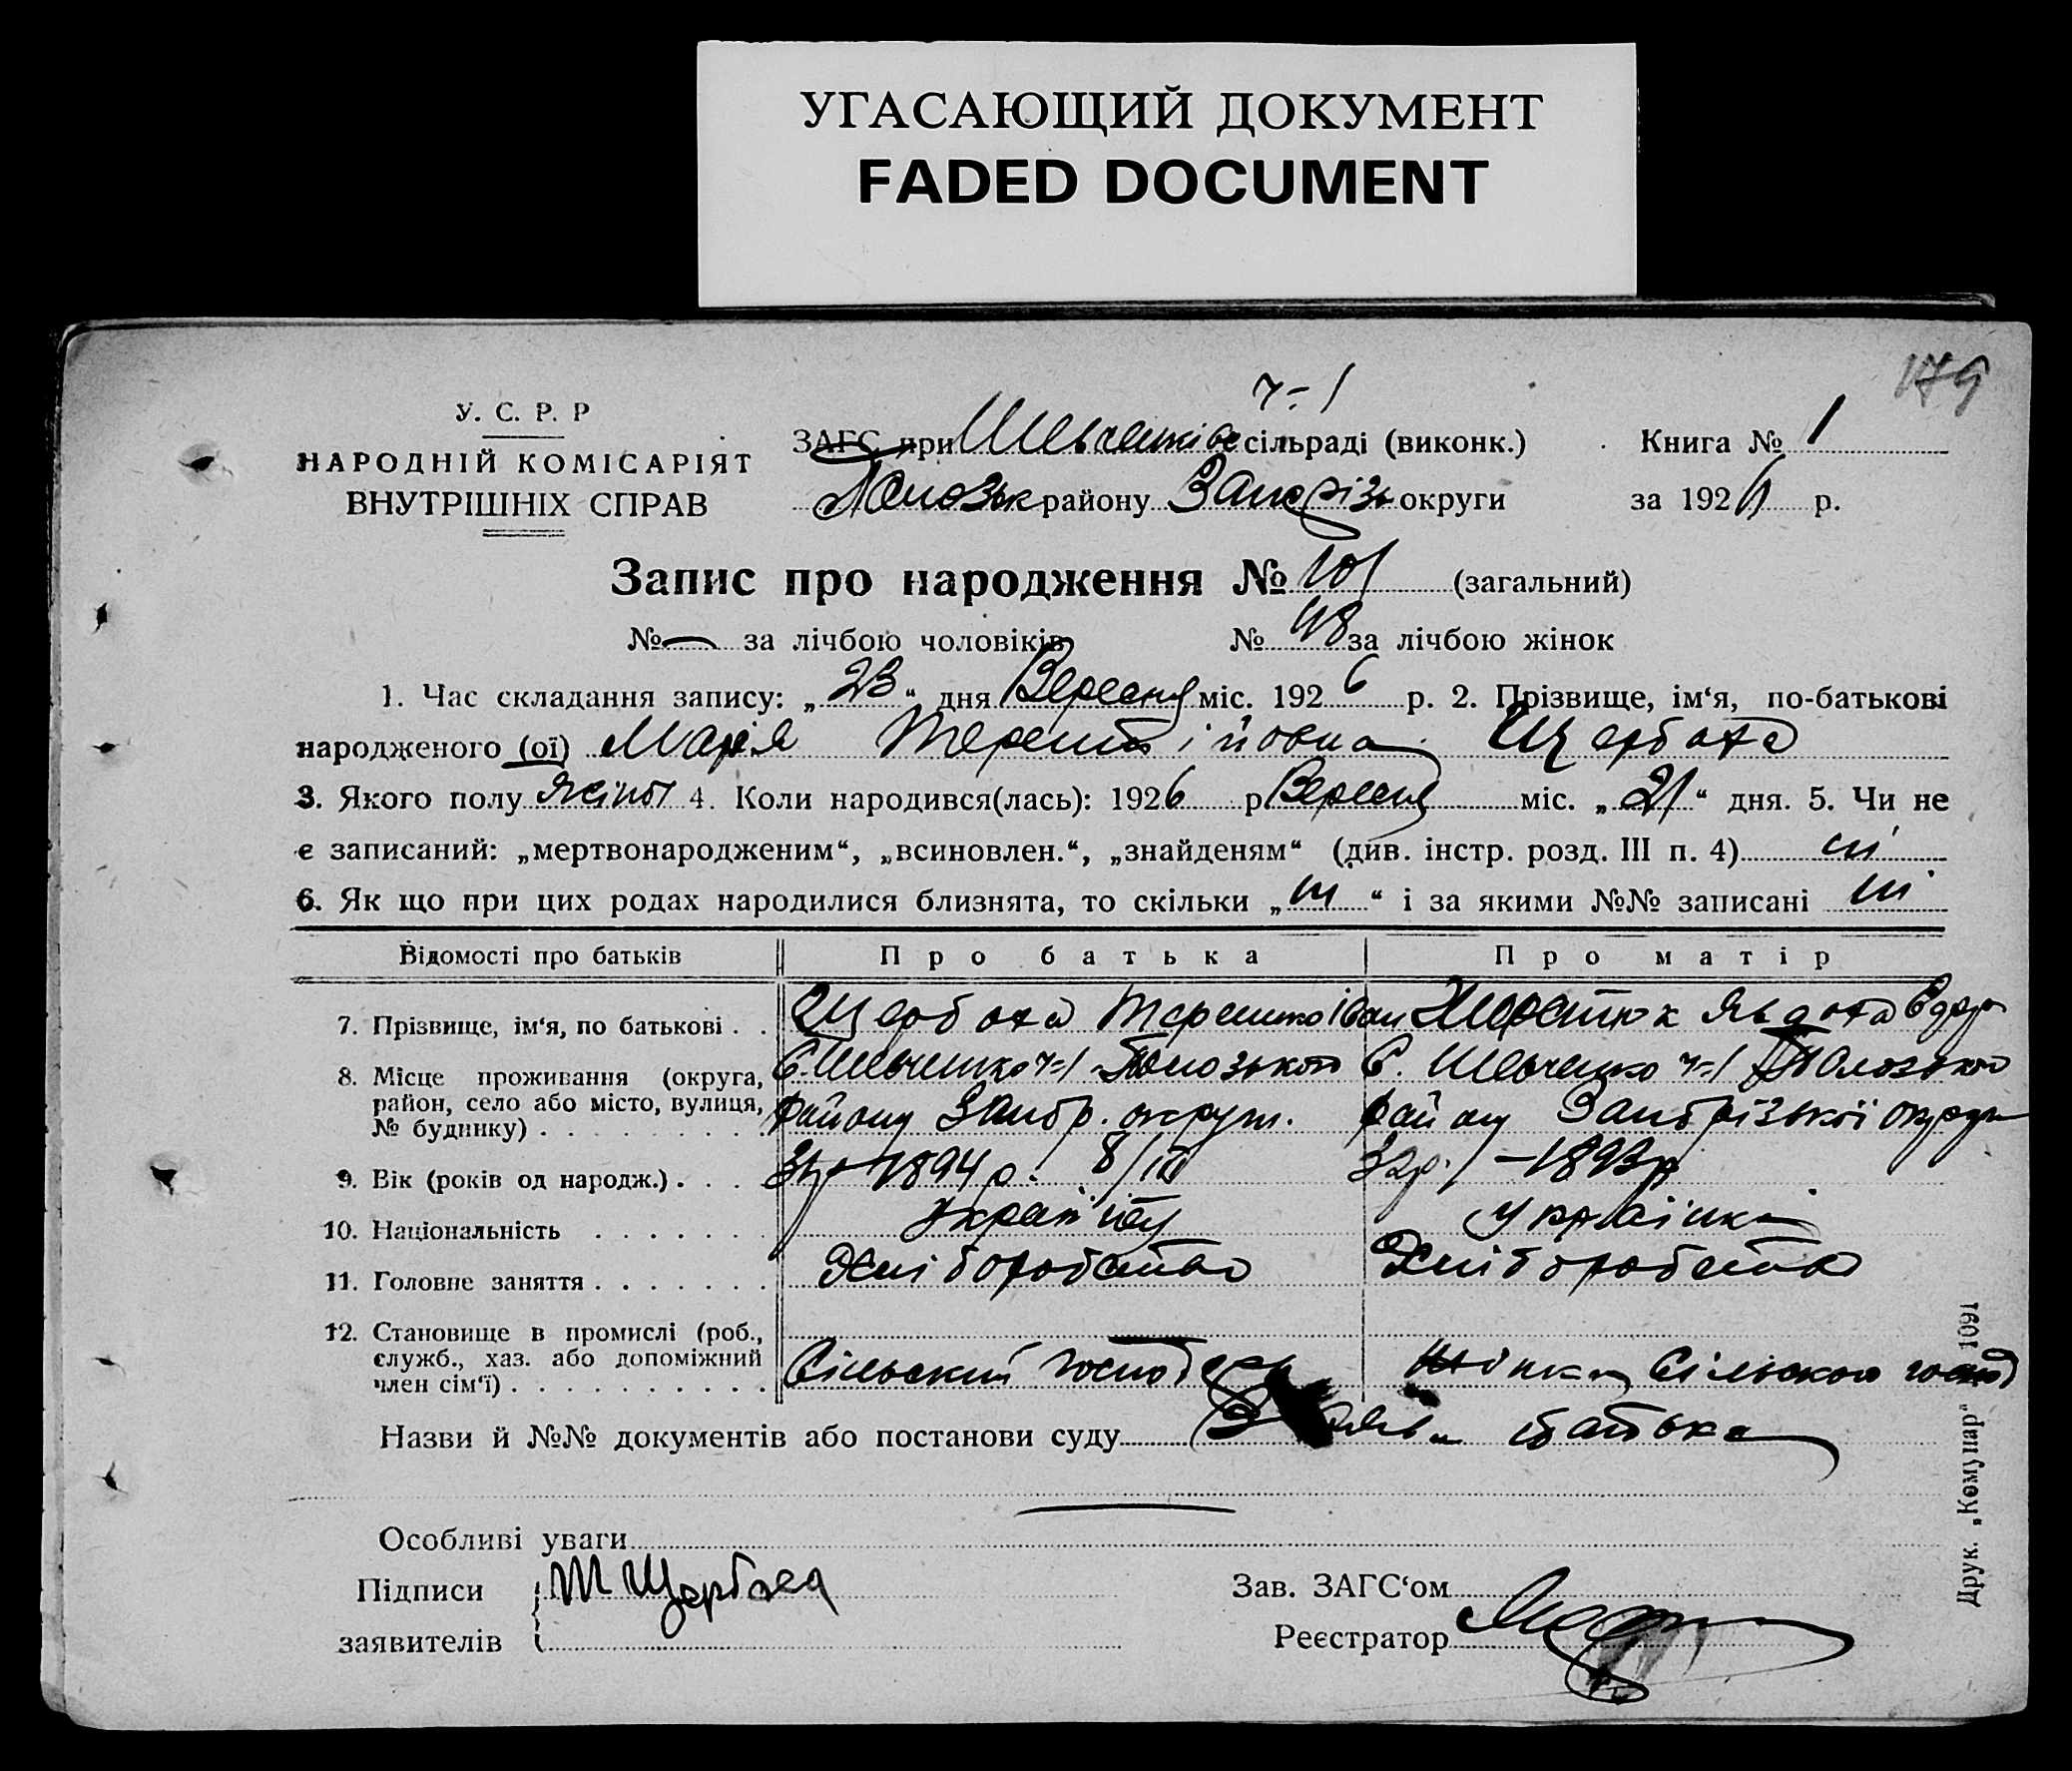 УГАСАЮЩИЙ ДОКУМЕНТ
FADED DOCUMENT
179
У. С. Р. Р
НАРОДНІЙ КОМІСАРІЯТ
ВНУТРІШНІХ СПРАВ
ч-1
ЗАГС при Шевченківс сільраді (виконк.)
Книга № 1
Пологзьк району Запорізь округи
за 1926 р.
Запис про народження № 101 (загальний)
№ — за лічбою чоловіків № 48 за лічбою жінок
1. Час складання запису: „23“ дня Вересня міс. 1926 р. 2. Прізвище, ім‘я, по-батькові
народженого (ої) Марія Терентіївна Щербата
3. Якого полу жіног 4. Коли народився(лась): 1926 р Вересня міс. „21“ дня. 5. Чи не
є записаний: „мертвонародженим“, „всиновлен.“, „знайденям“ (див. інстр. розд. III п. 4) ні
6. Як що при цих родах народилися близнята, то скільки „ні“ і за якими №№ записані ні
Відомості про батьків Про батька Про матір
7. Прізвище, ім‘я, по батькові . . Терешко Іван Явдоха
8. Місце проживання (округа, С. Шевченко ч-1 Пологзького С. Шевченко ч-1 Пологзького
район, село або місто, вулиця, району Запор. округи. району Запорізької округи
№ будинку) . . . . . . . . .
9. Вік (років од народж.) . . . 1894 р. 32 р. – 1893 р
10. Національність . . . . . . . Українец Українка
11. Головне заняття . . . . . . . Хліборобство Хліборобство
12. Становище в промислі (роб.,
служб., хаз. або допоміжний Сільський господарь Жінка Сільського господ
член сім‘ї) . . . . . . . . . .
Назви й №№ документів або постанови суду батька
Особливі уваги
Підписи Т Щербата
заявителів
Зав. ЗАГС‘ом
Реєстратор
Друк. „Комунар“ 1091